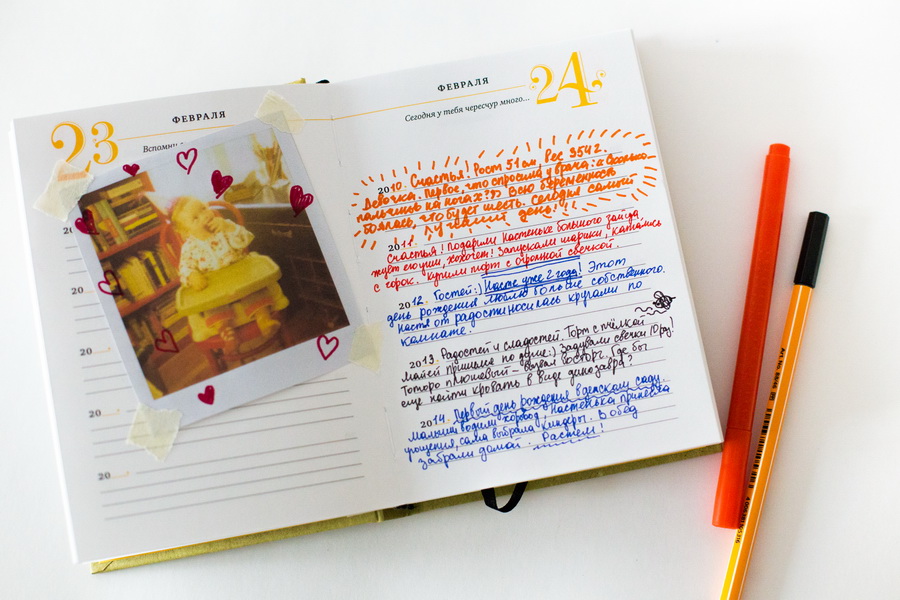 23
ФЕВРАЛЯ
Вспомни
20
20
20
20
ФЕВРАЛЯ
24
Сегодня у тебя чересчур много...
2010. Счастья! Рост 51 см, Вес 3542.
Девочка. Первое, что спросила у врача: "Сколько
пальчиков на ногах?" Всю беременность
боялась, что будет шесть. Сегодня самый
лучший день!!!
2011.
Счастья! Подарили Настеньке большого зайца,
жмёт его уши, хохочет! Запускали шарики, катались
с горок. Купили торт с огромной свечкой.
2012. Гостей:) Насте уже 2 года! Этот
день рождения люблю больше собственного.
Настя от радости носилась кругами по
комнате.
2013. Радостей и сладостей. Торт с пчёлкой
Майей пришелся по душе:) Задували свечки 10 раз!
Тоторо плюшевый - вызвал восторг. Где бы
еще найти кровать в виде динозавра?
2014. Первый день рождения в детском саду.
Малыши водили хоровод, Настенька принесла
угощения, сама выбрала киндеры. В обед
забрали домой. Растем!